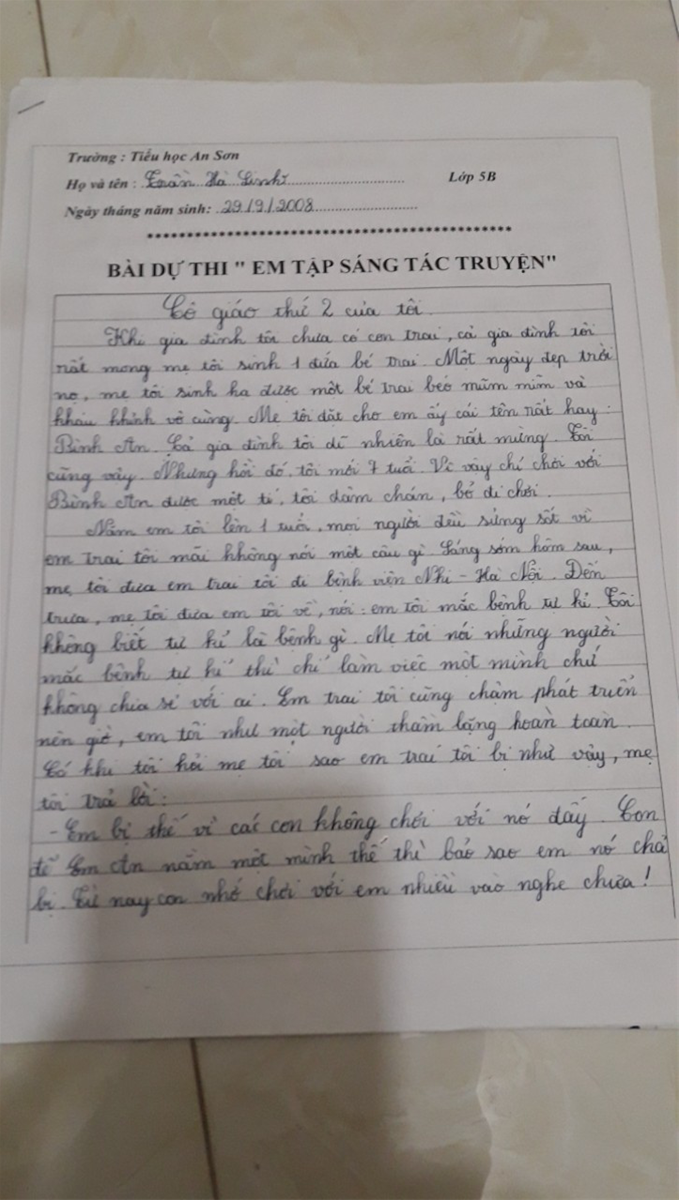 Trường : Tiểu học An Sơn
Họ và tên : Trần Hà Linh Lớp 5B
Ngày tháng năm sinh: 29/9/2008
BÀI DỰ THI " EM TẬP SÁNG TÁC TRUYỆN"
Cô giáo thứ 2 của tôi.
Khi gia đình tôi chưa có con trai, cả gia đình tôi
rất mong mẹ tôi sinh 1 đứa bé trai. Một ngày đẹp trời
nọ, mẹ tôi sinh hạ được một bé trai béo mũm mĩm và
kháu khỉnh vô cùng. Mẹ tôi đặt cho em ấy cái tên rất hay:
Bình An. Cả gia đình tôi dĩ nhiên là rất mừng. Tôi
cũng vậy. Nhưng hồi đó, tôi mới 7 tuổi. Vì vậy chỉ chơi với
Bình An được một tí, tôi đâm chán, bỏ đi chơi.
Năm em tôi lên 1 tuổi, mọi người đều sửng sốt vì
em trai tôi mãi không nói một câu gì. Sáng sớm hôm sau,
mẹ tôi đưa em trai tôi đi bệnh viện Nhi - Hà Nội. Đến
trưa, mẹ tôi đưa em tôi về, nói: em tôi mắc bệnh tự kỉ. Tôi
không biết tự kỉ là bệnh gì. Mẹ tôi nói những người
mắc bệnh tự kỉ thì chỉ làm việc một mình chứ
không chia sẻ với ai. Em trai tôi cũng chậm phát triển
nên giờ, em tôi như một người thầm lặng hoàn toàn.
Có khi tôi hỏi mẹ tôi sao em trai tôi bị như vậy, mẹ
tôi trả lời:
- Em bị thế vì các con không chơi với nó đấy. Con
để Em An nằm một mình thế thì bảo sao em nó chả
bị. Từ nay con nhớ chơi với em nhiều vào nghe chưa!